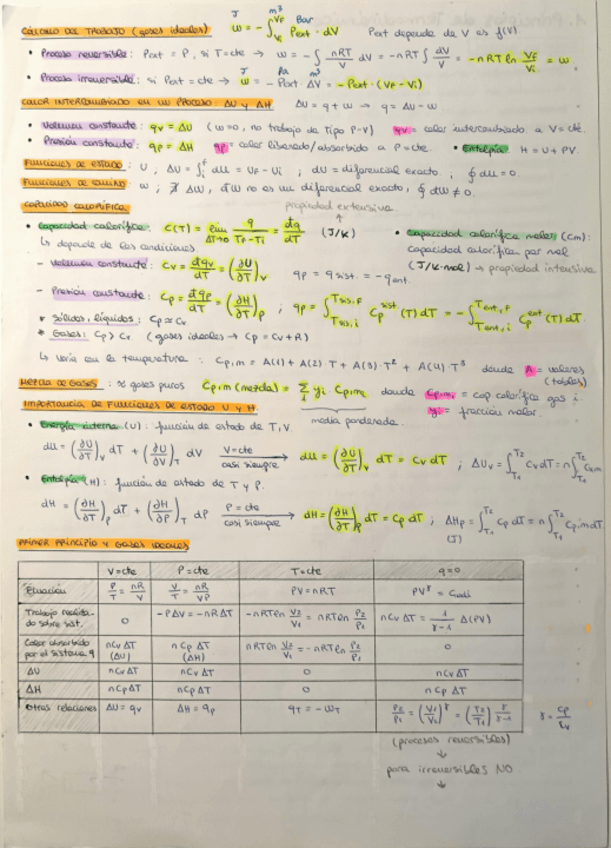 CÁLCULO DEL TRABAJO (gases ideales) w = -∫_{Vi}^{VF} Pext · dV J m³ Bar Pext depende de V es f(V).
• Proceso reversible: Pext = P, si T=cte → w = -∫ nRT/V dV = -nRT ∫ dV/V = -nRT ln VF/Vi = w
• Proceso irreversible: si Pext = cte → w = -Pext · ΔV = -Pext · (VF - Vi) J Pa m³
CALOR INTERCAMBIADO EN UN PROCESO: ΔU y ΔH ΔU = q + w → q = ΔU - w
• Volumen constante: qv = ΔU (w=0, no trabajo de tipo P-V) qv = calor intercambiado a V=cte.
• Presión constante: qp = ΔH qp = calor liberado/absorbido a P=cte. • Entalpía: H = U + PV.
Funciones de estado: U, ΔU = ∫_i^f dU = UF - Ui ; dU = diferencial exacto ; ∮ dU = 0.
Funciones de camino: w, ∄ Δw, đw no es un diferencial exacto, ∮ đw ≠ 0.
CAPACIDAD CALORÍFICA: propiedad extensiva
• Capacidad calorífica: C(T) = lim_{ΔT→0} q/(TF - Ti) = đq/dT (J/K) • Capacidad calorífica molar (Cm):
↳ depende de las condiciones capacidad calorífica por mol
- Volumen constante: Cv = đqv/dT = (∂U/∂T)v qp = q sist. = -q ent. (J/K·mol) → propiedad intensiva
- Presión constante: Cp = đqp/dT = (∂H/∂T)p ; qp = ∫_{Tsis,i}^{Tsis,F} Cp^{sist}(T) dT = -∫_{Tent,i}^{Tent,F} Cp^{ent}(T) dT.
* Sólidos, líquidos: Cp ≈ Cv
* Gases: Cp > Cv (gases ideales → Cp = Cv + R)
↳ varía con la temperatura: Cp,m = A(1) + A(2)·T + A(3)·T² + A(4)·T³ donde A = valores
(tablas)
MEZCLA DE GASES: ≈ gases puros Cp,m (mezcla) = Σ_i yi · Cp,m,i donde Cp,m,i = cap calorífica gas i.
IMPORTANCIA DE FUNCIONES DE ESTADO U y H. media ponderada. yi = fracción molar.
• Energía interna (U): función de estado de T, V
dU = (∂U/∂T)v dT + (∂U/∂V)T dV V=cte casi siempre → dU = (∂U/∂T)v dT = Cv dT ; ΔUv = ∫_{T1}^{T2} Cv dT = n∫_{T1}^{T2} Cv,m
• Entalpía (H): función de estado de T y P.
dH = (∂H/∂T)p dT + (∂H/∂P)T dP P=cte casi siempre → dH = (∂H/∂T)p dT = Cp dT ; ΔHp = ∫_{T1}^{T2} Cp dT = n∫_{T1}^{T2} Cp,m dT
(J)
PRIMER PRINCIPIO Y GASES IDEALES
V=cte P=cte T=cte q=0
Ecuación P/T = nR/V V/T = nR/P PV=nRT PV^γ = Cadi
Trabajo realizado sobre sist. 0 -PΔV = -nRΔT -nRT ln V2/V1 = nRT ln P2/P1 nCvΔT = 1/(γ-1) Δ(PV)
Calor absorbido por el sistema q nCvΔT (ΔU) nCpΔT (ΔH) nRT ln V2/V1 = -nRT ln P2/P1 0
ΔU nCvΔT nCvΔT 0 nCvΔT
ΔH nCpΔT nCpΔT 0 nCpΔT
Otras relaciones ΔU = qv ΔH = qp qT = -wT P2/P1 = (V1/V2)^γ = (T2/T1)^{γ/(γ-1)} γ = Cp/Cv
(procesos reversibles)
↓
para irreversibles NO
↓